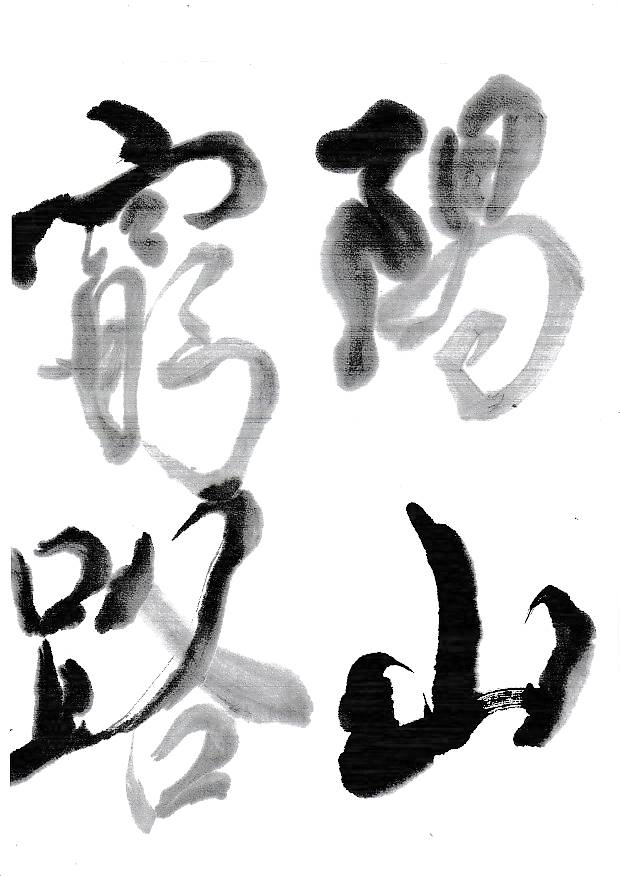 陽山
窮路